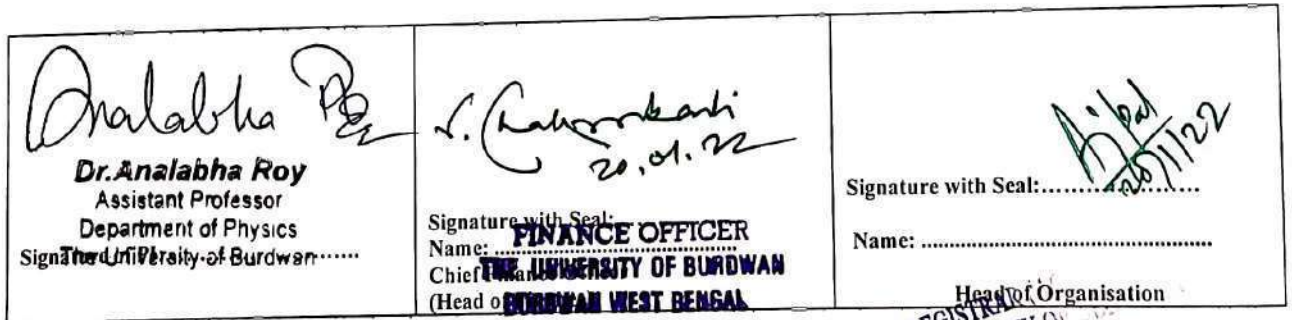 Analabha Roy
Dr.Analabha Roy
Assistant Professor
Department of Physics
The University of Burdwan
Signature of PI
S. Chakrabarti
20.01.22
Signature with Seal:
FINANCE OFFICER
Name:
THE UNIVERSITY OF BURDWAN
Chief
(Head o
BURDWAN WEST BENGAL
20/1/22
Signature with Seal:
Name:
Head of Organisation
REGISTRAR